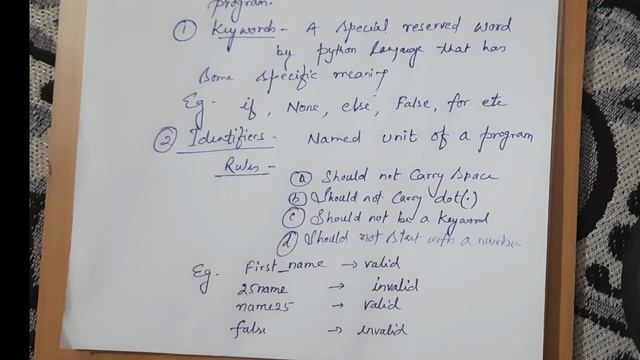 program.
① Keywords - A special reserved word
by python language that has
Some specific meaning
Eg. if, None, else, False, for etc
② Identifiers - Named unit of a program
Rules -
ⓐ Should not carry space
ⓑ Should not carry dot(.)
ⓒ Should not be a keyword
ⓓ Should not start with a number
Eg. First_name → valid
25name → invalid
name25 → valid
false → invalid